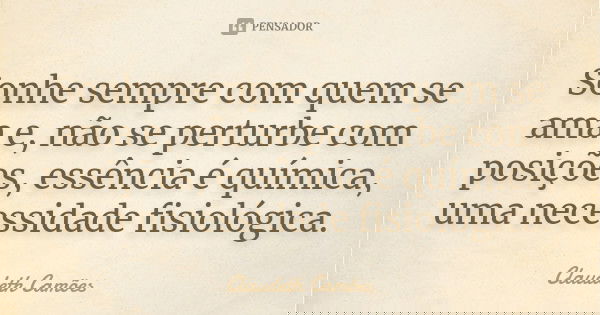 PENSADOR
Sonhe sempre com quem se
ama e, não se perturbe com
posições, essência é química,
uma necessidade fisiológica.
Claudeth Camões